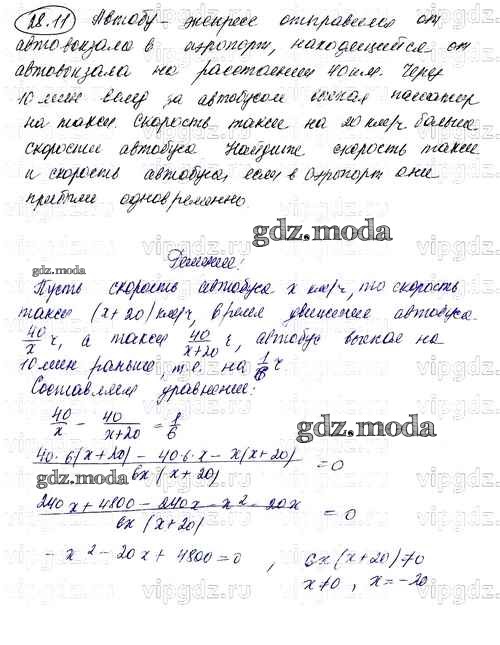 28.11 Автобус-экспресс отправился от
автовокзала в аэропорт, находящийся от
автовокзала на расстоянии 40 км. Через
10 мин вслед за автобусом выехал пассажир
на такси. Скорость такси на 20 км/ч больше
скорости автобуса. Найдите скорость такси
и скорость автобуса, если в аэропорт они
прибыли одновременно.
gdz.moda
Решение:
gdz.moda
Пусть скорость автобуса x км/ч, то скорость
такси (x+20) км/ч, время движения автобуса
40/x ч, а такси 40/(x+20) ч, автобус выехал на
10 мин раньше, т.е. на 1/6 ч
Составляем уравнение:
40/x - 40/(x+20) = 1/6
gdz.moda
(40·6(x+20) - 40·6·x - x(x+20))/(6x(x+20)) = 0
gdz.moda
(240x + 4800 - 240x - x² - 20x)/(6x(x+20)) = 0
- x² - 20x + 4800 = 0, 6x(x+20)≠0
x≠0, x=-20
vipgdz.com